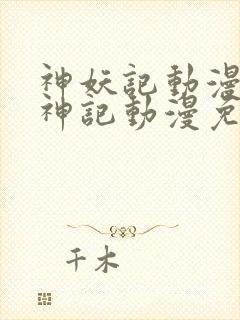 神妖記動漫
神記動漫免
千木